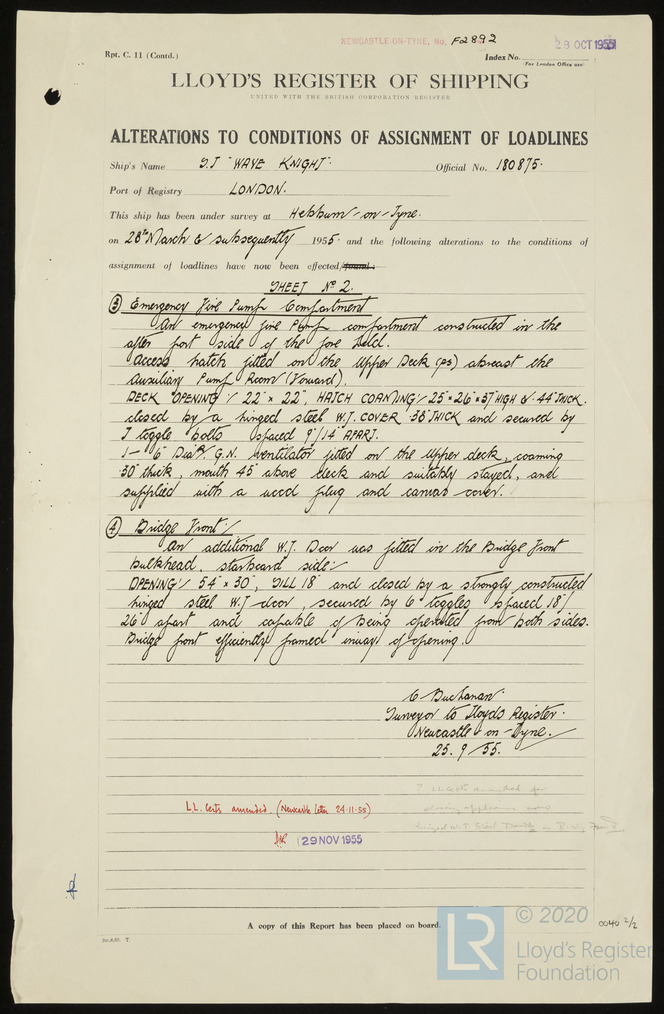 NEWCASTLE-ON-TYNE, No. F2892
28 OCT 1955
Rpt. C. 11 (Contd.)
Index No.
(For London Office use)
LLOYD'S REGISTER OF SHIPPING
UNITED WITH THE BRITISH CORPORATION REGISTER
ALTERATIONS TO CONDITIONS OF ASSIGNMENT OF LOADLINES
Ship's Name S.T "WAVE KNIGHT". Official No. 180875.
Port of Registry LONDON.
This ship has been under survey at Hebburn-on-Tyne.
on 28th March & subsequently 1955 and the following alterations to the conditions of
assignment of loadlines have now been effected/found:
SHEET No 2.
(3) Emergency Fire Pump Compartment
An emergency fire pump compartment constructed in the
after port side of the fore hold.
Access hatch fitted on the Upper Deck (PS) abreast the
Auxiliary Pump Room (Forward).
DECK OPENING:/ 22" × 22", HATCH COAMING:/ 25" × 26" × 37" HIGH & .44" THICK.
closed by a hinged steel W.T. COVER .38" THICK and secured by
5 toggle bolts spaced 9"/14" APART.
1 - 6" Diar. G.N. ventilator fitted on the Upper deck, coaming
.30" thick, mouth 45" above deck and suitably stayed, and
supplied with a wood plug and canvas cover.
(4) Bridge Front:/
An additional W.T. Door was fitted in the Bridge Front
bulkhead, starboard side:/
OPENING:/ 54" × 30", SILL 18" and closed by a strongly constructed
hinged steel W.T. door, secured by 6 toggles spaced 18"/
26" apart and capable of being operated from both sides.
Bridge front efficiently framed inway of opening.
C Buchanan.
Surveyor to Lloyds Register.
Newcastle-on-Tyne.
25.9/55.
? LL Certs amended for
closing appliances
hinged W.T. Steel Doors in Bridge Front?
LL. Certs amended. (Newcastle letter 24-11-55)
29 NOV 1955
A copy of this Report has been placed on board.
LR © 2020
Lloyd's Register
Foundation
0040 2/2